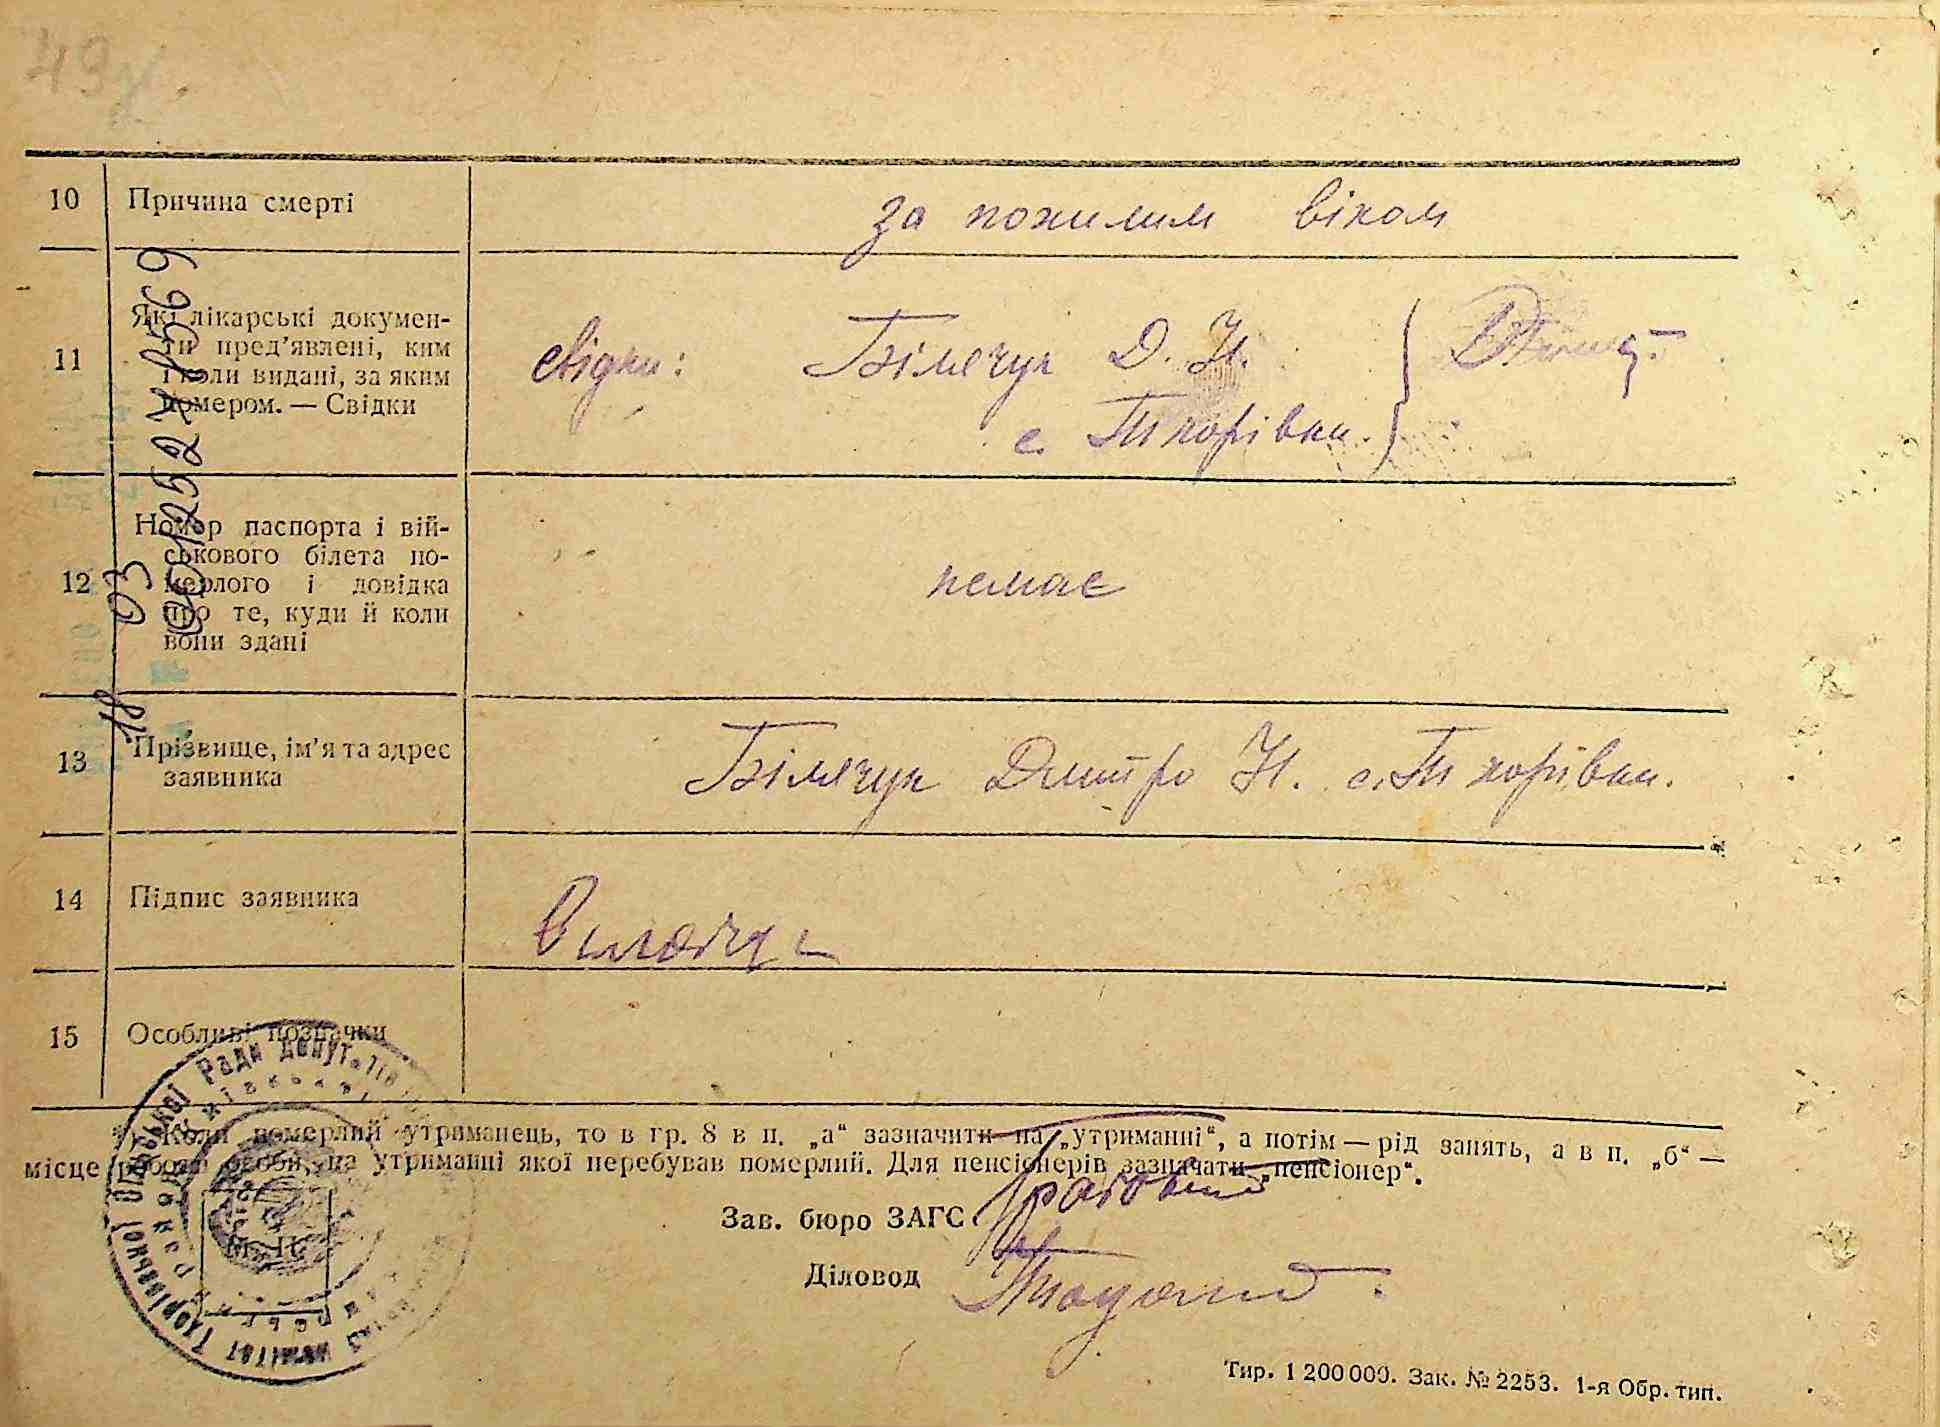 49
10 Причина смерті за похилим віком
11 Які лікарські докумен-
ти пред'явлені, ким
і коли видані, за яким
номером. — Свідки
свідки: Білячук Д. Н.
с. Тхорівка.
00125274569
12 Номер паспорта і вій-
ськового білета по-
мерлого і довідка
про те, куди й коли
вони здані
немає
18 03
13 Прізвище, ім'я та адрес
заявника
Білячук Дмитро Н. с. Тхорівка.
14 Підпис заявника
15 Особливі позначки
*) Коли померлий утриманець, то в гр. 8 в п. „а“ зазначити на „утриманні“, а потім — рід занять, а в п. „б“ —
місце роботи особи, на утриманні якої перебував померлий. Для пенсіонерів зазначати „пенсіонер“.
Зав. бюро ЗАГС
Діловод
М. П.
комітет Тхорівської сільської Ради депут
Тир. 1 200 000. Зак. № 2253. 1-я Обр. тип.